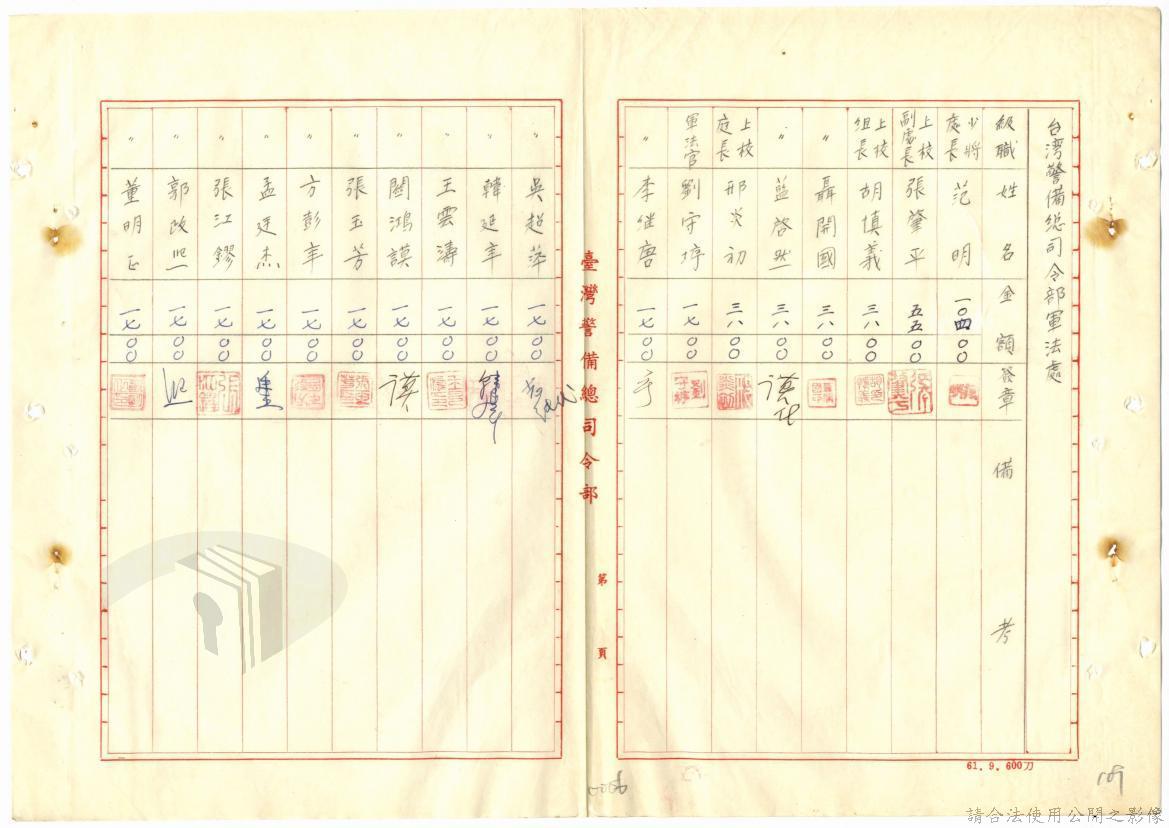 台湾警備総司令部軍法處
級職 姓名 金額 簽章 備考
少將處長 范明 一〇四〇〇
上校副處長 張肇平 五五〇〇
上校組長 胡慎義 三八〇〇
〃 聶開國 三八〇〇
〃 藍啓然 三八〇〇
上校庭長 邢炎初 三八〇〇
軍法官 劉守埻 一七〇〇
〃 李继唐 一七〇〇
臺灣警備總司令部
第 頁
〃 吳超萍 一七〇〇
〃 韓延年 一七〇〇
〃 王雲濤 一七〇〇
〃 關鴻謨 一七〇〇
〃 張玉芳 一七〇〇
〃 方彭年 一七〇〇
〃 孟廷杰 一七〇〇
〃 張江鏐 一七〇〇
〃 郭政熙 一七〇〇
〃 董明正 一七〇〇
61.9.600刀
109
請合法使用公開之影像